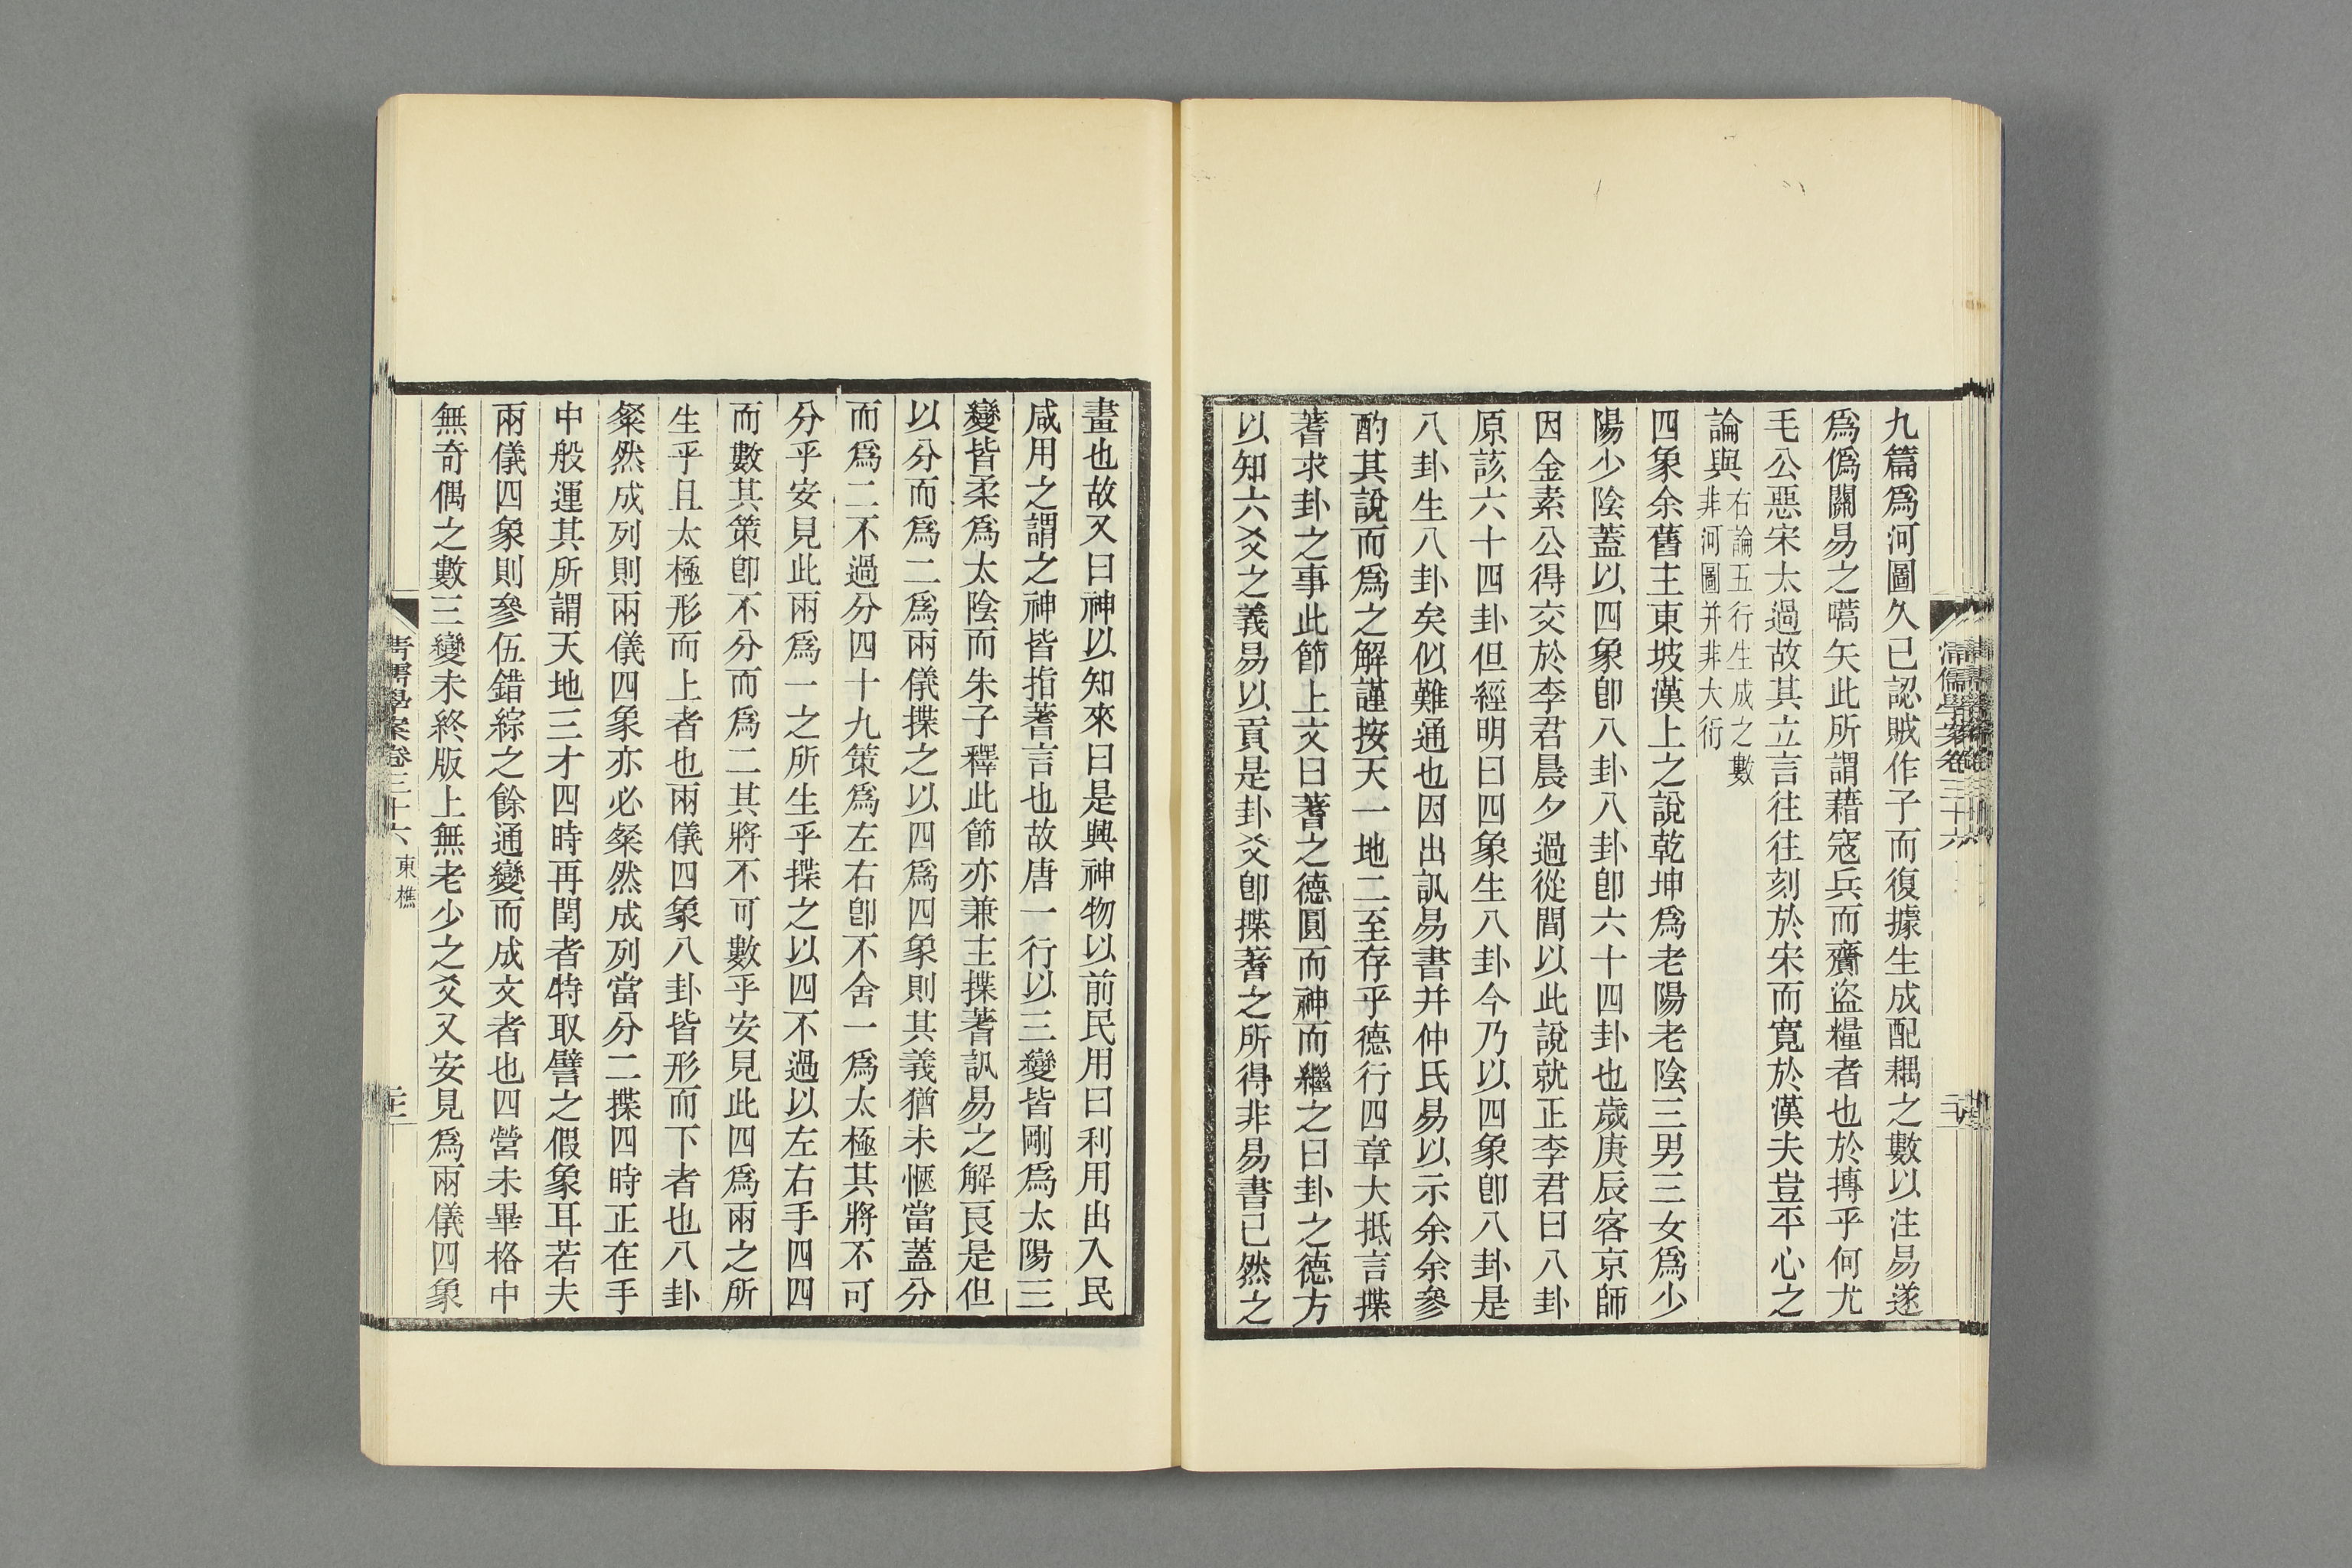 九篇爲河圖久已認賊作子而復據生成配耦之數以注易遂
爲僞關易之嚆矢此所謂藉寇兵而齎盜糧者也於摶乎何尤
毛公惡宋太過故其立言往往刻於宋而寬於漢夫豈平心之
論與
右論五行生成之數
非河圖并非大衍
四象余舊主東坡漢上之說乾坤爲老陽老陰三男三女爲少
陽少陰蓋以四象卽八卦八卦卽六十四卦也歲庚辰客京師
因金素公得交於李君晨夕過從間以此說就正李君曰八卦
原該六十四卦但經明曰四象生八卦今乃以四象卽八卦是
八卦生八卦矣似難通也因出訊易書并仲氏易以示余余參
酌其說而爲之解謹按天一地二至存乎德行四章大抵言揲
蓍求卦之事此節上文曰蓍之德圓而神而繼之曰卦之德方
以知六爻之義易以貢是卦爻卽揲蓍之所得非易書已然之
畫也故又曰神以知來曰是興神物以前民用曰利用出入民
咸用之謂之神皆指蓍言也故唐一行以三變皆剛爲太陽三
變皆柔爲太陰而朱子釋此節亦兼主揲蓍訊易之解良是但
以分而爲二爲兩儀揲之以四爲四象則其義猶未愜當蓋分
而爲二不過分四十九策爲左右卽不舍一爲太極其將不可
分乎安見此兩爲一之所生乎揲之以四不過以左右手四四
而數其策卽不分而爲二其將不可數乎安見此四爲兩之所
生乎且太極形而上者也兩儀四象八卦皆形而下者也八卦
粲然成列則兩儀四象亦必粲然成列當分二揲四時正在手
中般運其所謂天地三才四時再閏者特取譬之假象耳若夫
兩儀四象則參伍錯綜之餘通變而成文者也四營未畢格中
無奇偶之數三變未終版上無老少之爻又安見爲兩儀四象
清儒學案卷三十六 東樵